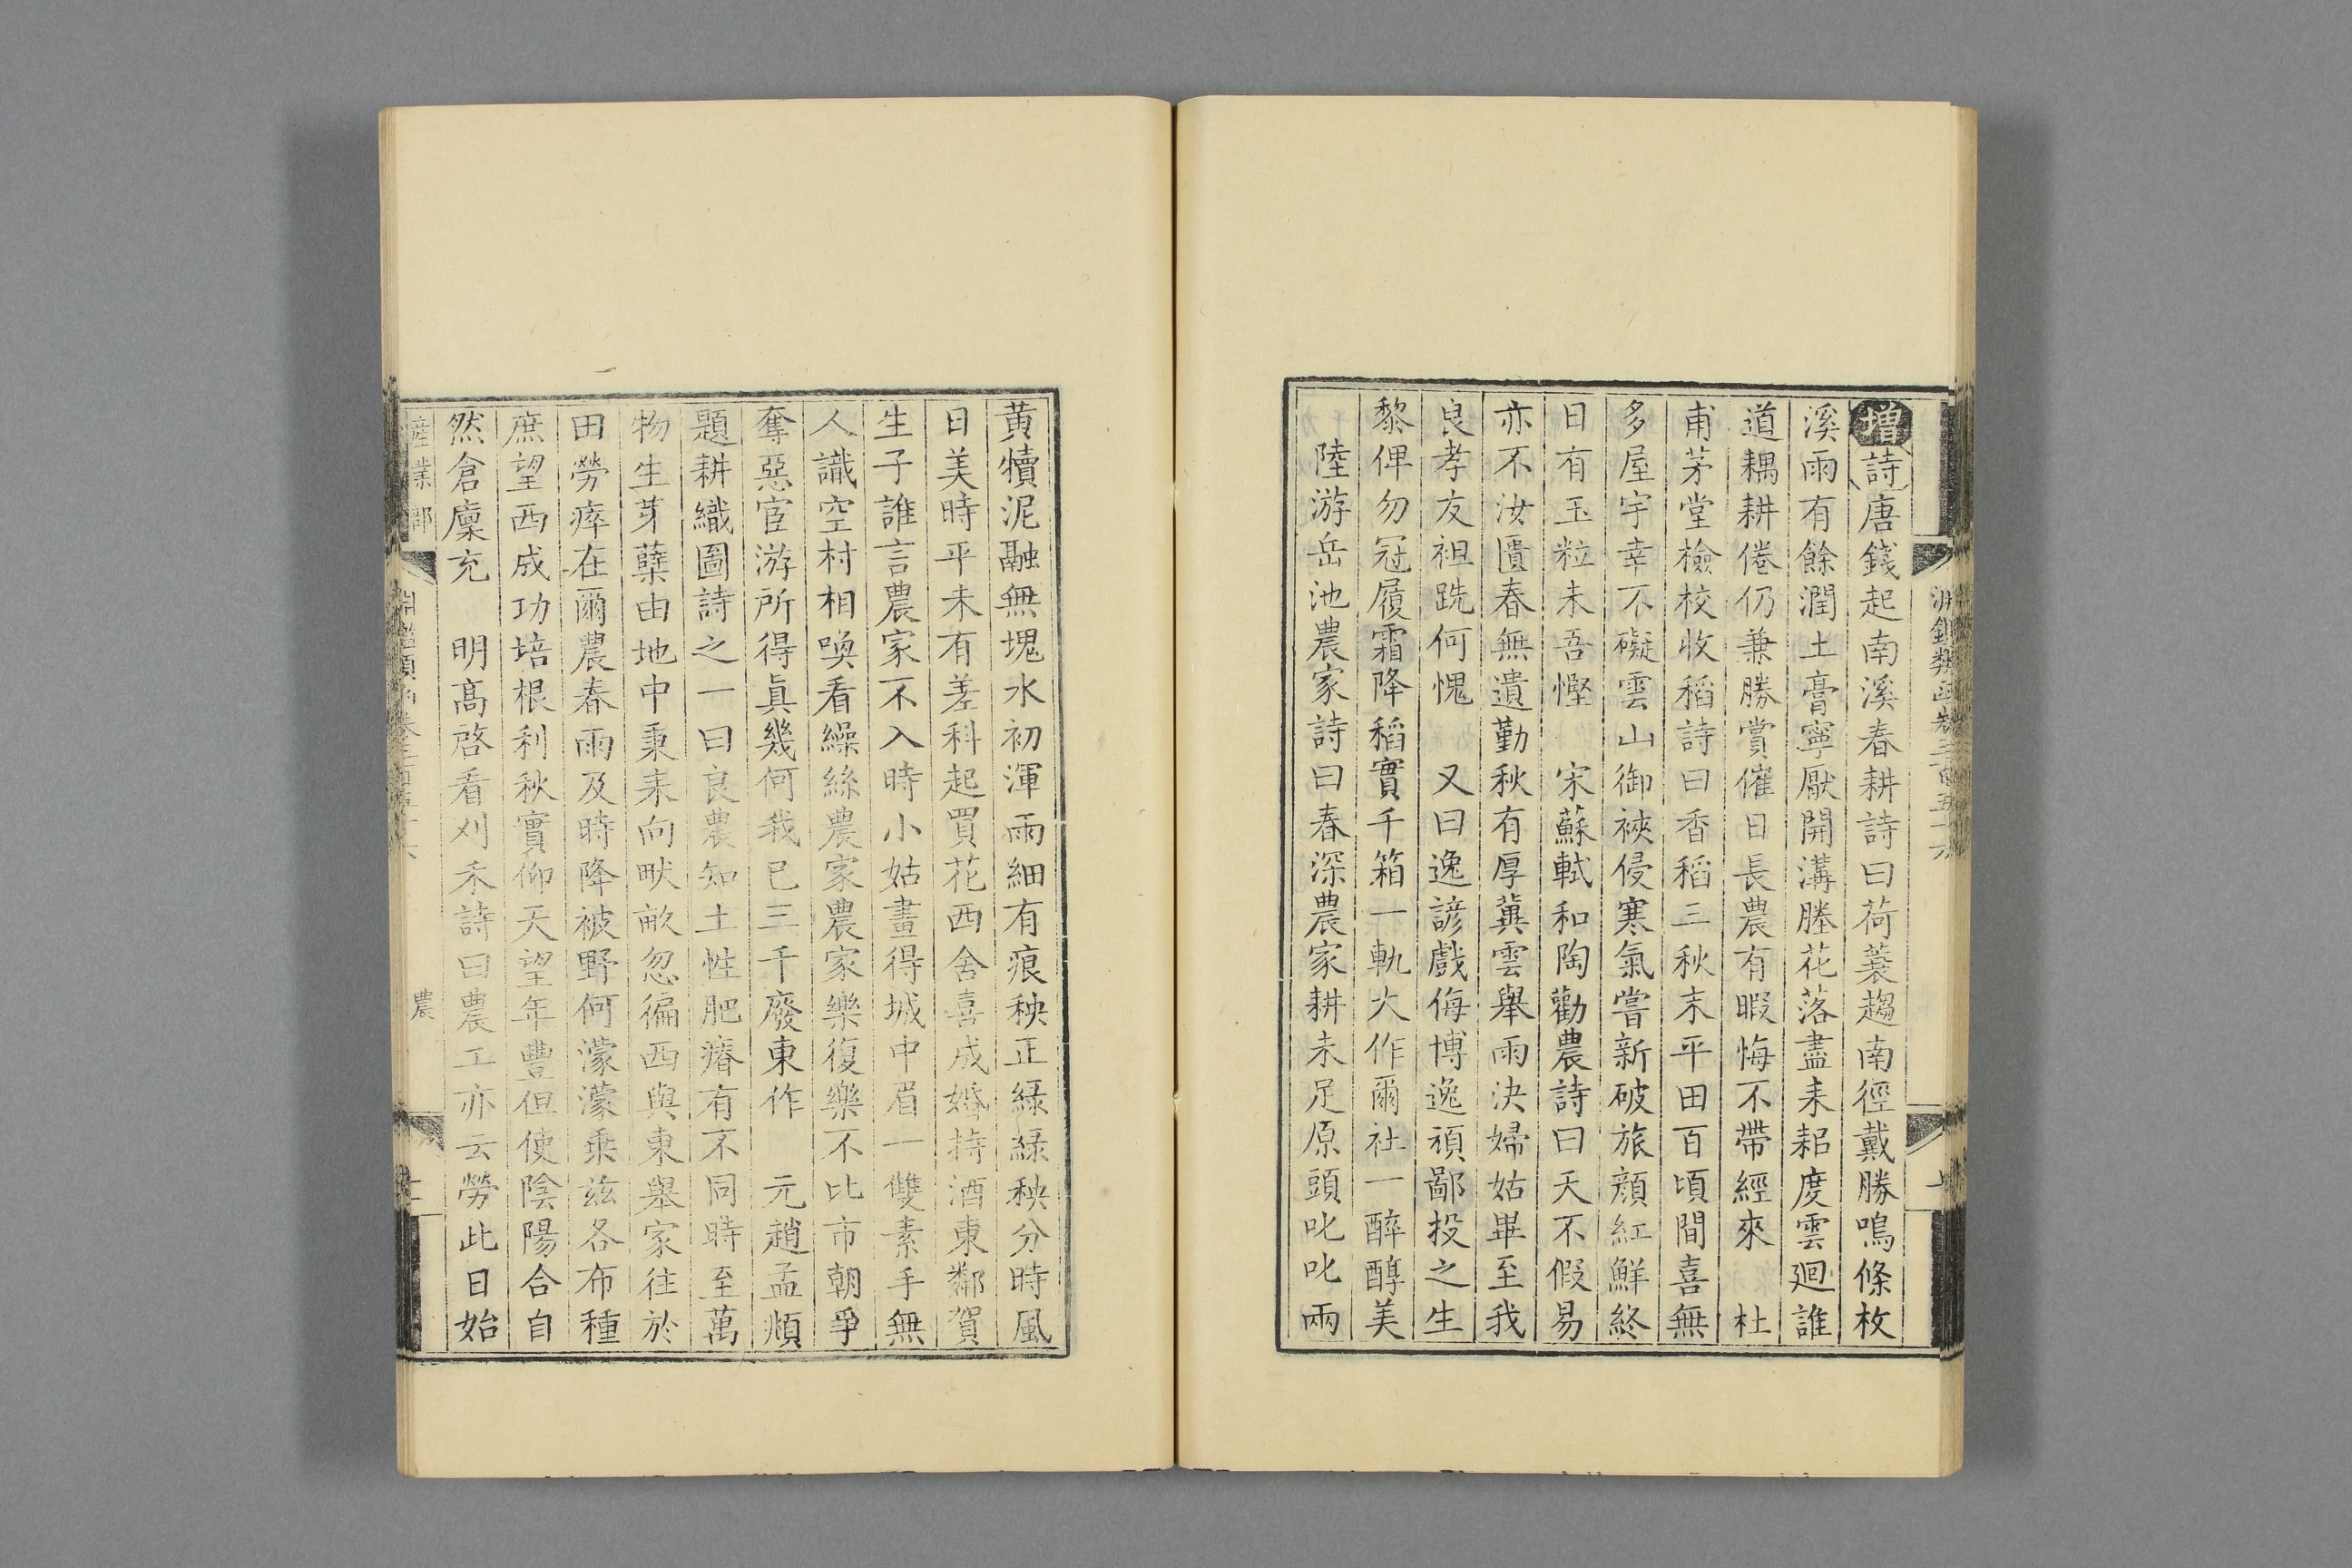 增詩唐錢起南溪春耕詩曰荷蓑趨南徑戴勝鳴條枚
溪雨有餘潤土膏寧厭開溝塍花落盡耒耜度雲廻誰
道耦耕倦仍兼勝賞催日長農有暇悔不帶經來　杜
甫茅堂檢校收稻詩曰香稻三秋末平田百頃間喜無
多屋宇幸不礙雲山御裌侵寒氣嘗新破旅顔紅鮮終
日有玉粒未吾慳　宋蘇軾和陶勸農詩曰天不假易
亦不汝匱春無遺勤秋有厚冀雲舉雨決婦姑畢至我
良孝友袒跣何愧　又曰逸諺戲侮博逸頑鄙投之生
黎俾勿冠履霜降稻實千箱一軌大作爾社一醉醇美
陸游岳池農家詩曰春深農家耕未足原頭叱叱兩
黃犢泥融無塊水初渾雨細有痕秧正綠綠秧分時風
日美時平未有差科起買花西舍喜成婚持酒東鄰賀
生子誰言農家不入時小姑畫得城中眉一雙素手無
人識空村相喚看繰絲農家農家樂復樂不比市朝爭
奪惡宦游所得眞幾何我已三千廢東作　元趙孟頫
題耕織圖詩之一曰良農知土性肥瘠有不同時至萬
物生芽蘖由地中秉耒向畎畝忽徧西與東舉家往於
田勞瘁在爾農春雨及時降被野何濛濛乘茲各布種
庶望西成功培根利秋實仰天望年豐但使陰陽合自
然倉廩充　明高啓看刈禾詩曰農工亦云勞此日始
產業部
農